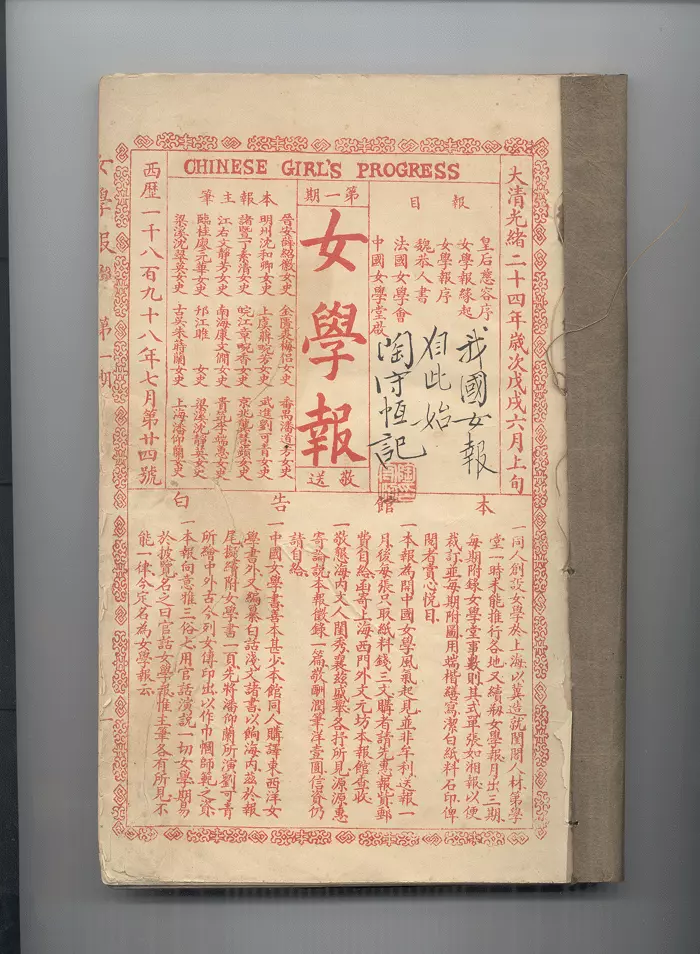 CHINESE GIRL'S PROGRESS
大清光緒二十四年歲次戊戌六月上旬
報目
皇后懿容序
女學報緣起
女學報序
魏恭人書
法國女學會
中國女學堂啟
我國女報
自此始
陶守恆記
第一期
女學報
敬送
本報主筆
晉安薛紹徽女史 金匱裘梅侶女史 番禺潘道芳女史
明州沈和卿女史 上虞蔣畹芳女史 武進劉可青女史
諸暨丁素清女史 皖江章畹香女史 京兆龔慧蘋女史
江右文靜芳女史 南海康文僩女史 貴筑李端蕙女史
臨桂廖元華女史 邗江睢 女史 梁溪沈靜英女史
梁溪沈翠英女史 古吳朱蒔蘭女史 上海潘仰蘭女史
西歷一千八百九十八年七月第廿四號
本館告白
一同人創設女學於上海以冀造就閨閣人材第學
堂一時未能推行各地又續刱女學報月出三期
每期附錄女學堂事數則其式單張如湘報以便
裁訂並每期附圖用端楷繕寫潔白紙料石印俾
閱者賞心悅目
一本報為開中國女學風氣起見並非牟利送報一
月後每張只取紙料錢三文購者請先惠報貲郵
費自給函寄上海西門外文元坊本報館查收
一敬懇海內文人閨秀襄茲盛舉各抒所見源源惠
寄論說本報徵錄一篇敬酬潤筆洋壹圓信資仍
請自給
一中國女學書善本甚少本館同人購譯東西洋女
學書外又編纂白話淺文諸書以餉海內茲於報
尾擬將附女學書一頁先將潘仰蘭所演劉可青
所繪中外古今列女傳印出以作巾幗師範之資
一本報向意雅三俗七用官話演說一切女學期易
於披覽名之曰官話女學報惟主筆各有所見不
能一律今定名為女學報云
女學報 第一期